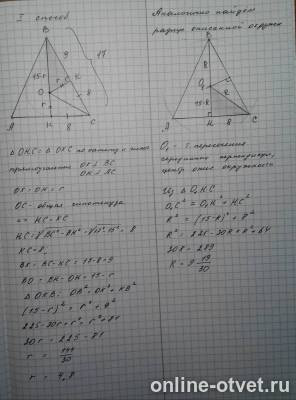 I способ
B
9
17
15-r
O
r
K
8
A
H
8
C
△ OHC = △ OKC по катету и гипот
прямоугольные OK ⊥ BC
OH ⊥ AC
OK = OH = r
OC - общая гипотенуза
=> HC = KC
HC = √BC² - BH² = √17² - 15² = 8
KC = 8;
BK = BC - KC = 17 - 8 = 9
BO = BH - OH = 15 - r
△ OKB: OB² = OK² + KB²
(15 - r)² = r² + 9²
225 - 30r + r² = r² + 81
30r = 225 - 81
r = 144/30
r = 4,8
Аналогично найдем
радиус описанной окружн
B
K
O₁
R
15-R
A
H
8
C
O₁ - т. пересечения
серединных перпендикул,
центр опис окружности
Из △ O₁HC
O₁C² = O₁H² + HC²
R² = (15-R)² + 8²
R² = 225 - 30R + R² + 64
30R = 289
R = 9 19/30
online-otvet.ru